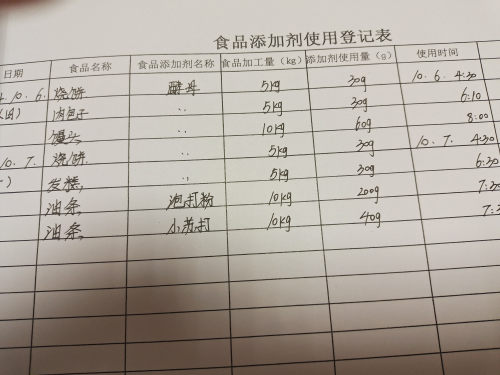 食品添加剂使用登记表
日期 食品名称 食品添加剂名称 食品加工量（kg） 添加剂使用量（g） 使用时间
10.6. 烧饼 酵母 5kg 30g 10.6.4:30
肉包子 〃 5kg 30g 6:10
馒头 〃 10kg 60g 8:00
10.7. 烧饼 〃 5kg 30g 10.7.4:30
发糕 〃 5kg 30g 6:30
油条 泡打粉 10kg 200g
油条 小苏打 10kg 40g